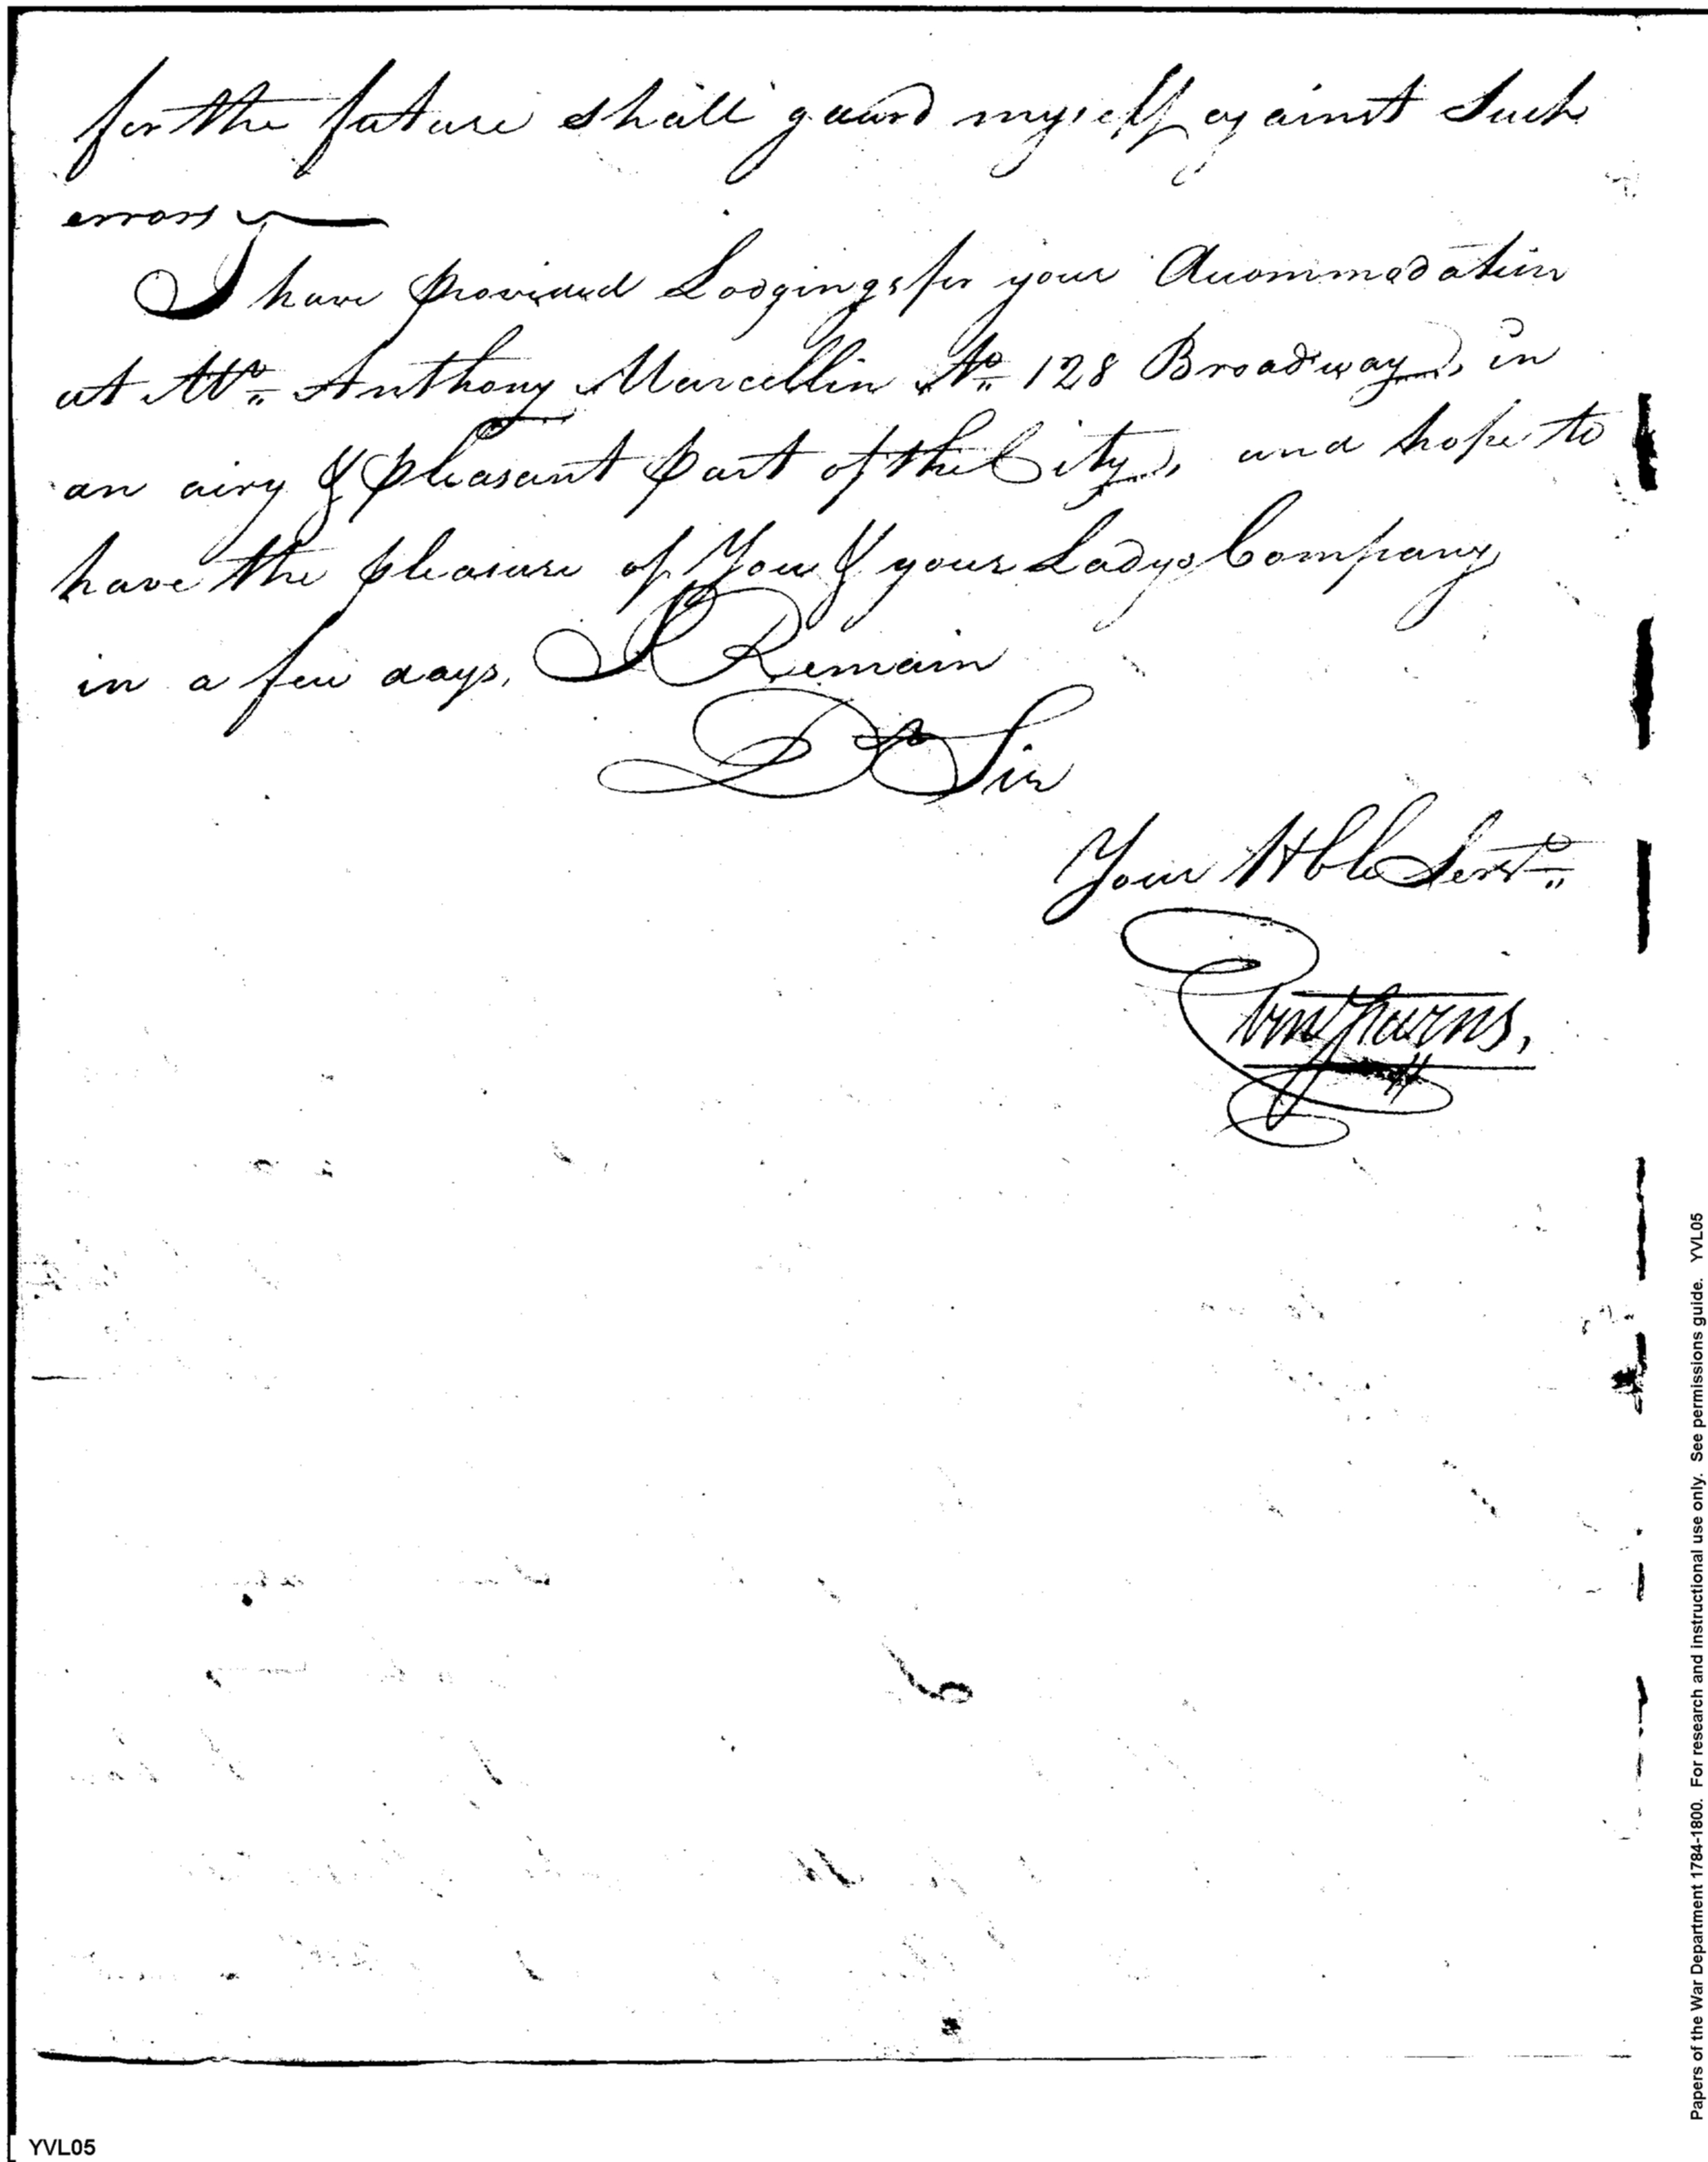 for the future shall guard myself against Such
errors
I have provided Lodgings for your Accommodation
at Mr. Anthony Marcellin No. 128 Broadway, in
an airy & pleasant part of the City, and hope to
have the pleasure of You & your Ladys Company
in a few days, I Remain
Dr Sir
Your Hble Servt.
Wm
YVL05
Papers of the War Department 1784-1800. For research and instructional use only. See permissions guide. YVL05